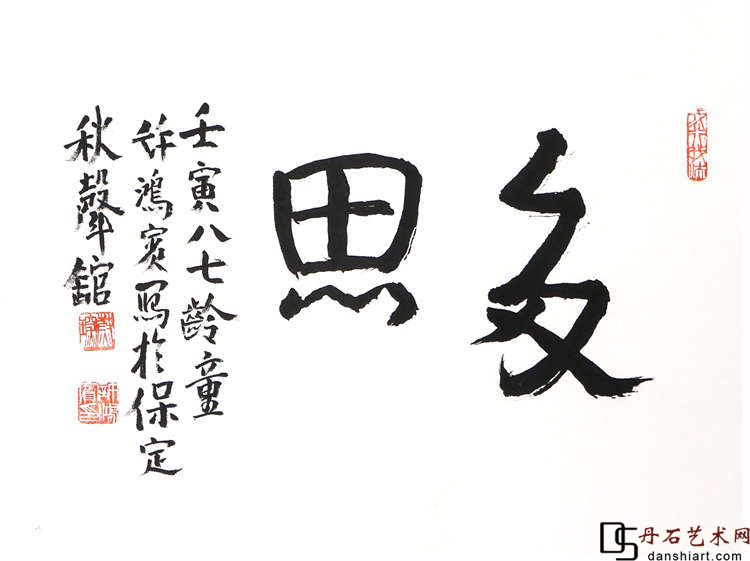 多思
壬寅八七齡童
许鴻賓写於保定
秋聲舘
丹石艺术网
danshiart.com